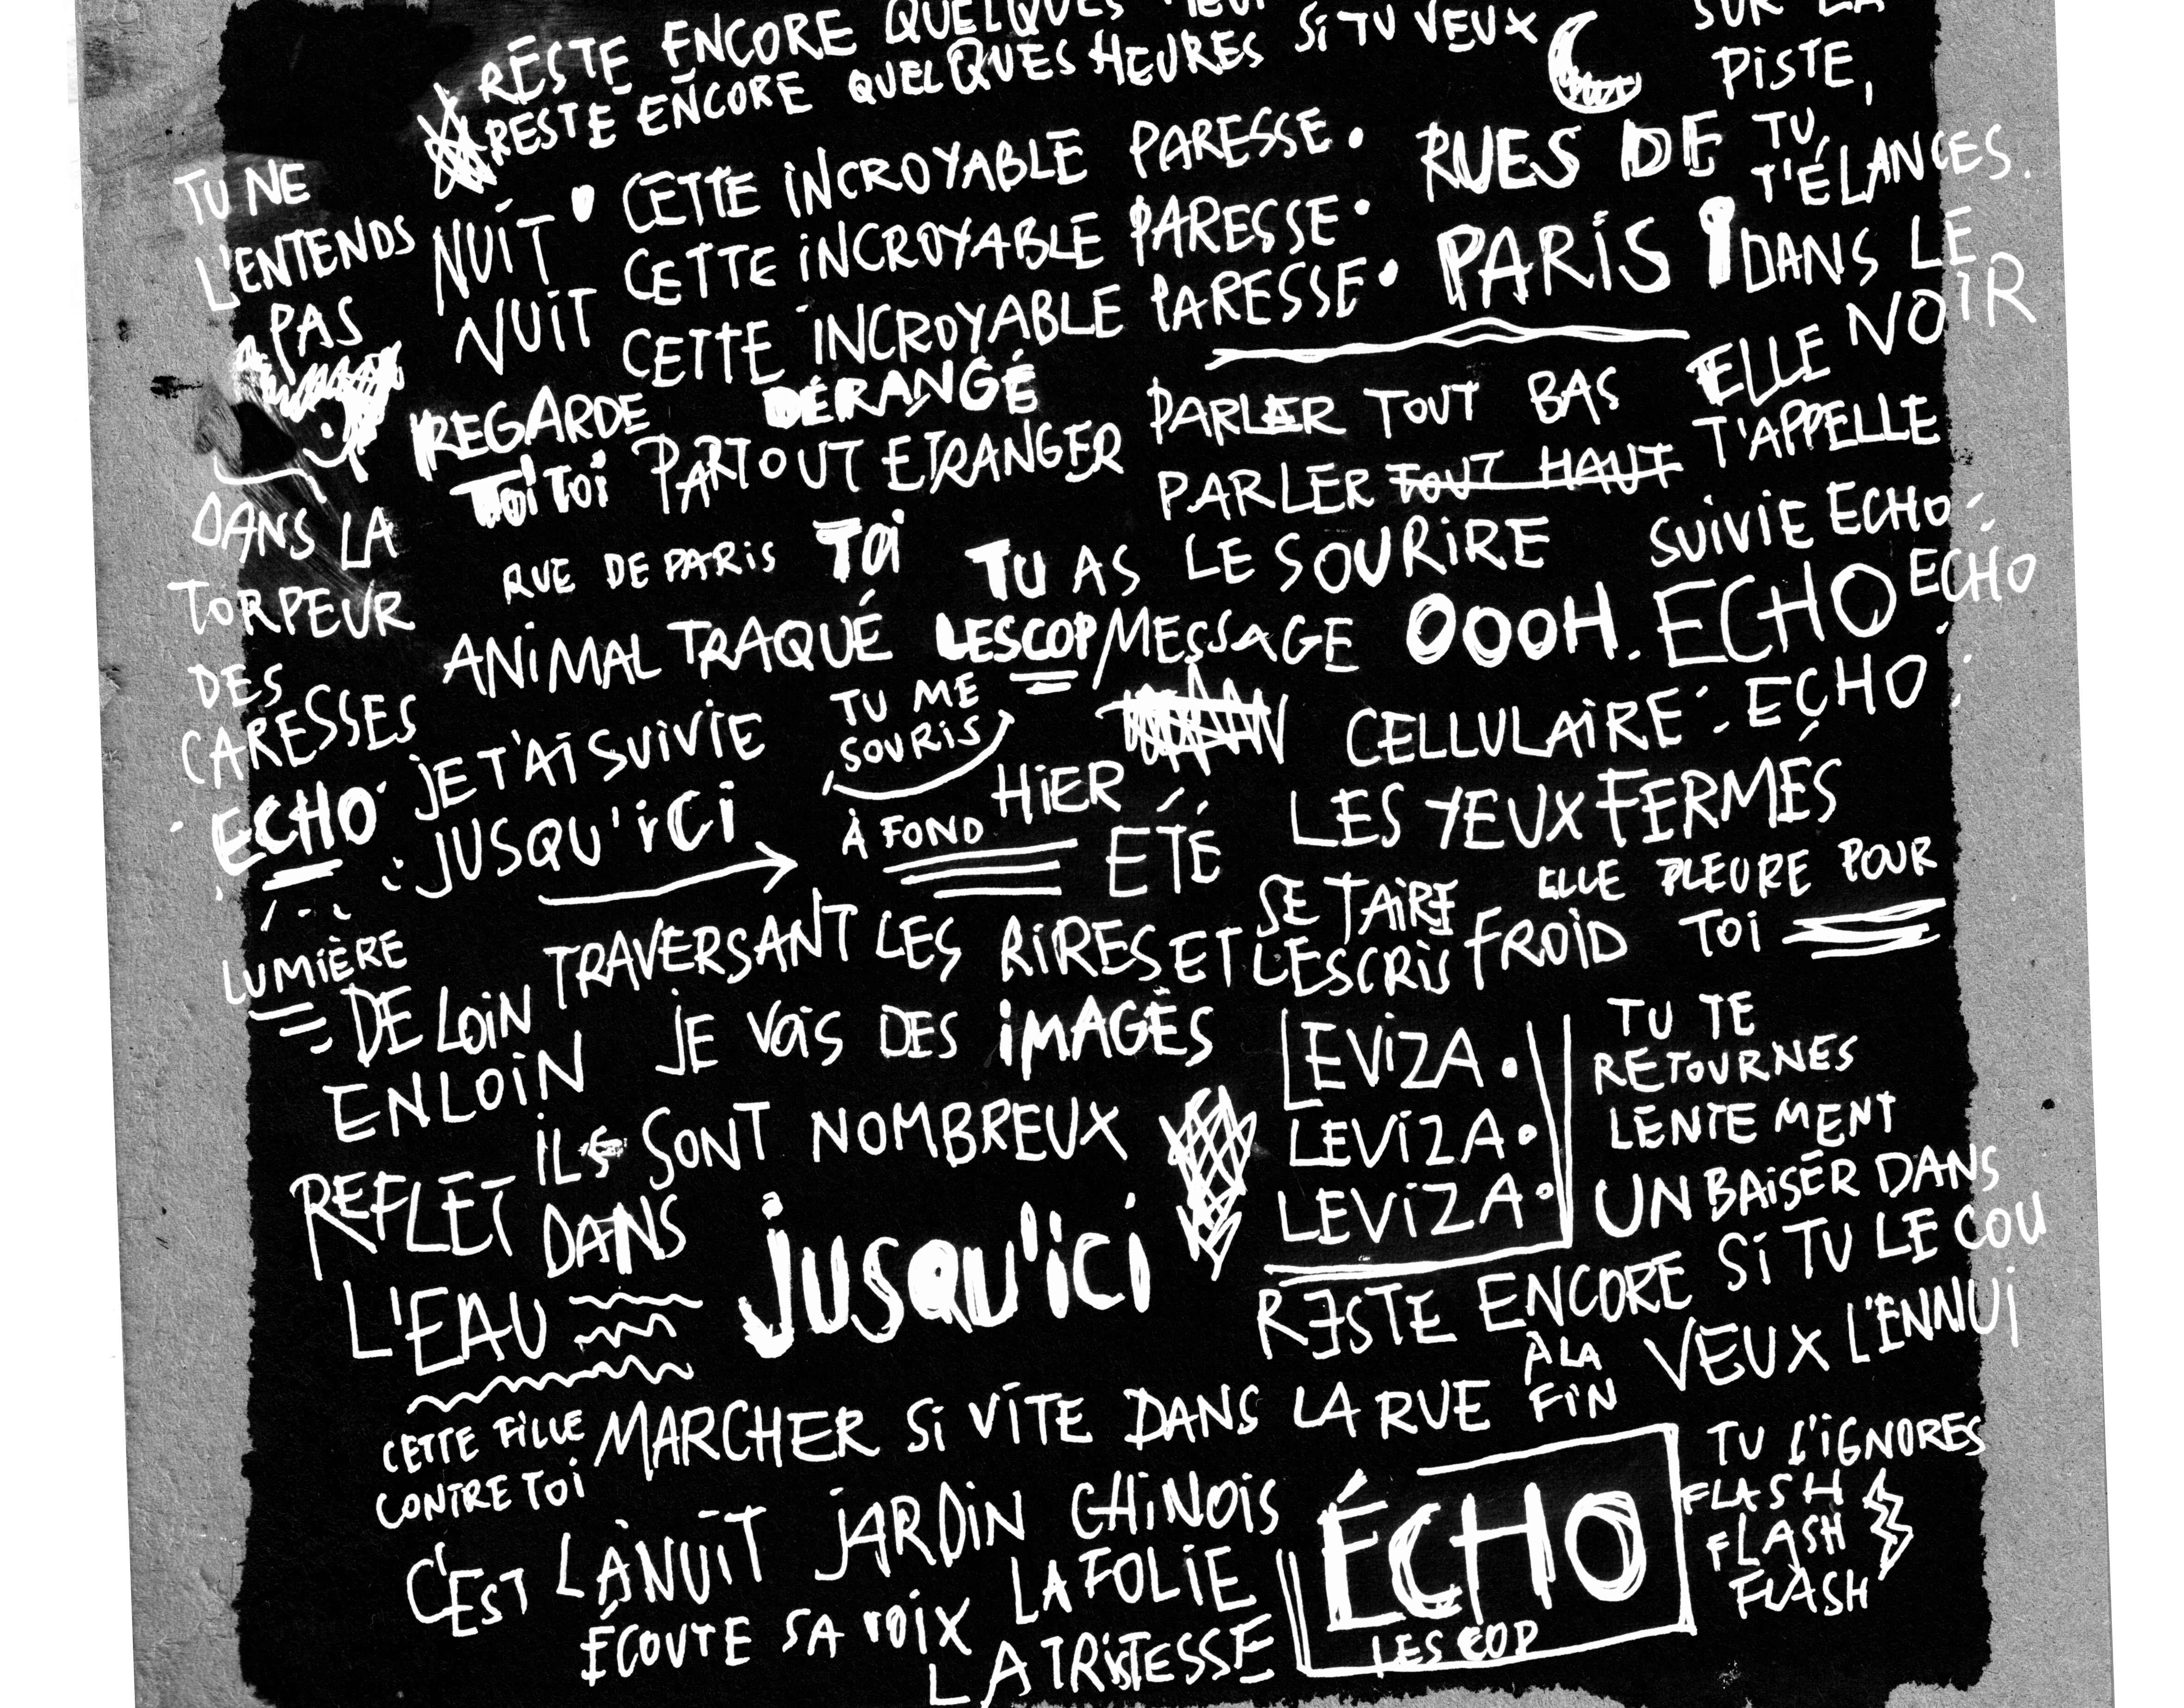 RESTE ENCORE QUELQUES
RESTE ENCORE QUELQUES HEURES SI TU VEUX
SUR LA
PISTE,
TU
T'ÉLANCES.
DANS LE
NOIR
TU NE
L'ENTENDS
PAS
NUIT CETTE INCROYABLE PARESSE.
CETTE INCROYABLE PARESSE.
NUIT CETTE INCROYABLE PARESSE.
RUES DE
PARIS
REGARDE DÉRANGÉ
TOI TOI PARTOUT ETRANGER
PARLER TOUT BAS
PARLER TOUT HAUT
ELLE
T'APPELLE
DANS LA
TORPEUR
DES
CARESSES
ECHO
RUE DE PARIS TOI TU AS LE SOURIRE
SUIVIE ECHO
ECHO ECHO
ECHO
ANIMAL TRAQUÉ LESCOP MESSAGE OOOH.
CELLULAIRE
JE T'AI SUIVIE
JUSQU'ICI
TU ME
SOURIS
À FOND
HIER
ÉTÉ
LES YEUX FERMÉS
SE TAIRE
ELLE PLEURE POUR
TOI
LUMIÈRE
DE LOIN
EN LOIN
TRAVERSANT LES RIRES ET LES CRIS FROID
JE VOIS DES IMAGES
LEVIZA.
LEVIZA.
LEVIZA.
TU TE
RETOURNES
LENTEMENT
UN BAISER DANS
LE COU
ILS SONT NOMBREUX
REFLET
DANS
L'EAU
JUSQU'ICI
RESTE ENCORE SI TU
VEUX L'ENNUI
À LA
FIN
CETTE FILLE
CONTRE TOI
MARCHER SI VITE DANS LA RUE
TU L'IGNORES
FLASH
FLASH
FLASH
C'EST LÀ NUIT JARDIN CHINOIS
ÉCOUTE SA VOIX LA FOLIE
LA TRISTESSE
ÉCHO
LESCOP